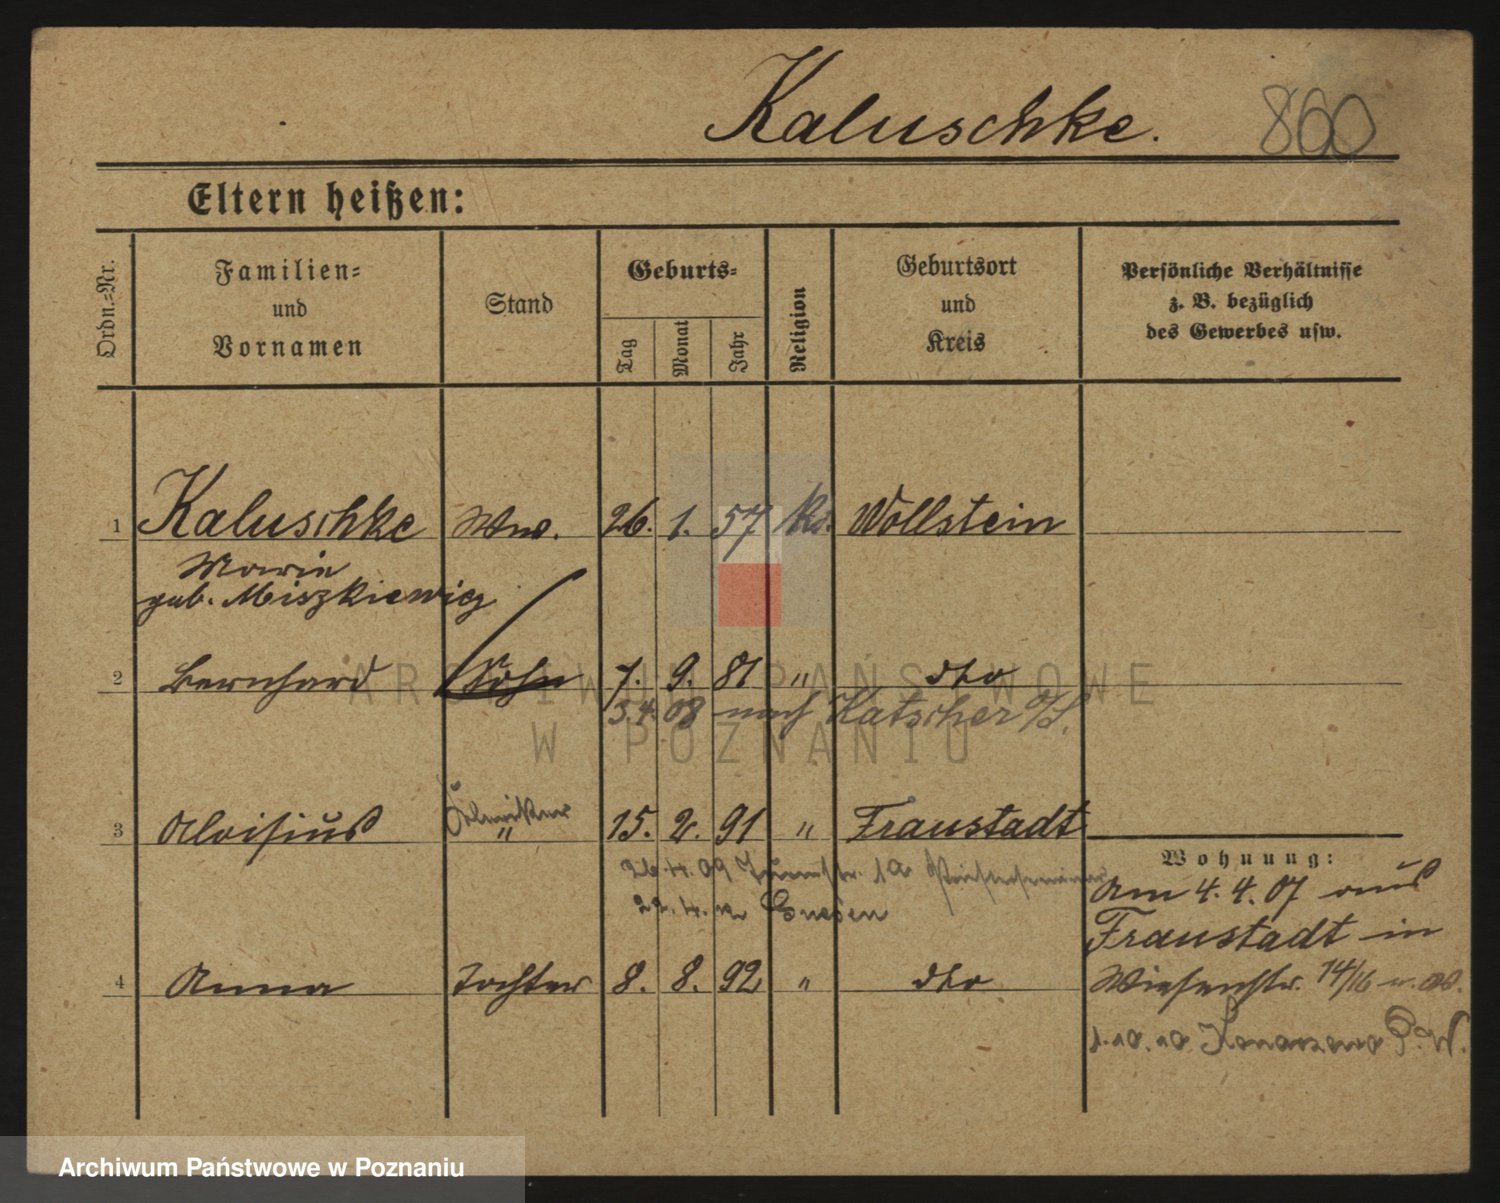 Kaluschke. 860
Eltern heißen:
Ordn.=Nr.
Familien=
und
Vornamen
Stand
Geburts=
Tag
Monat
Jahr
Religion
Geburtsort
und
Kreis
Persönliche Verhältnisse
z. B. bezüglich
des Gewerbes usw.
1 Kaluschke Ww. 26. 1. 57 Wollstein
Marie
geb. Miszkiewicz
2 Bernhard Sohn 7. 9. 81 " dto
3.4. 08 nach Katscher O/S.
3 Aloisius " 15. 2. 91 " Fraustadt
26.4.09
22.4. Gnesen
4 Anna Tochter 8. 8. 92 " dto
Wohnung:
Am 4. 4. 07 aus
Fraustadt in
Wiesenstr. 14/16
Konarzewo P. W.
ARCHIWUM PAŃSTWOWE
W POZNANIU
Archiwum Państwowe w Poznaniu